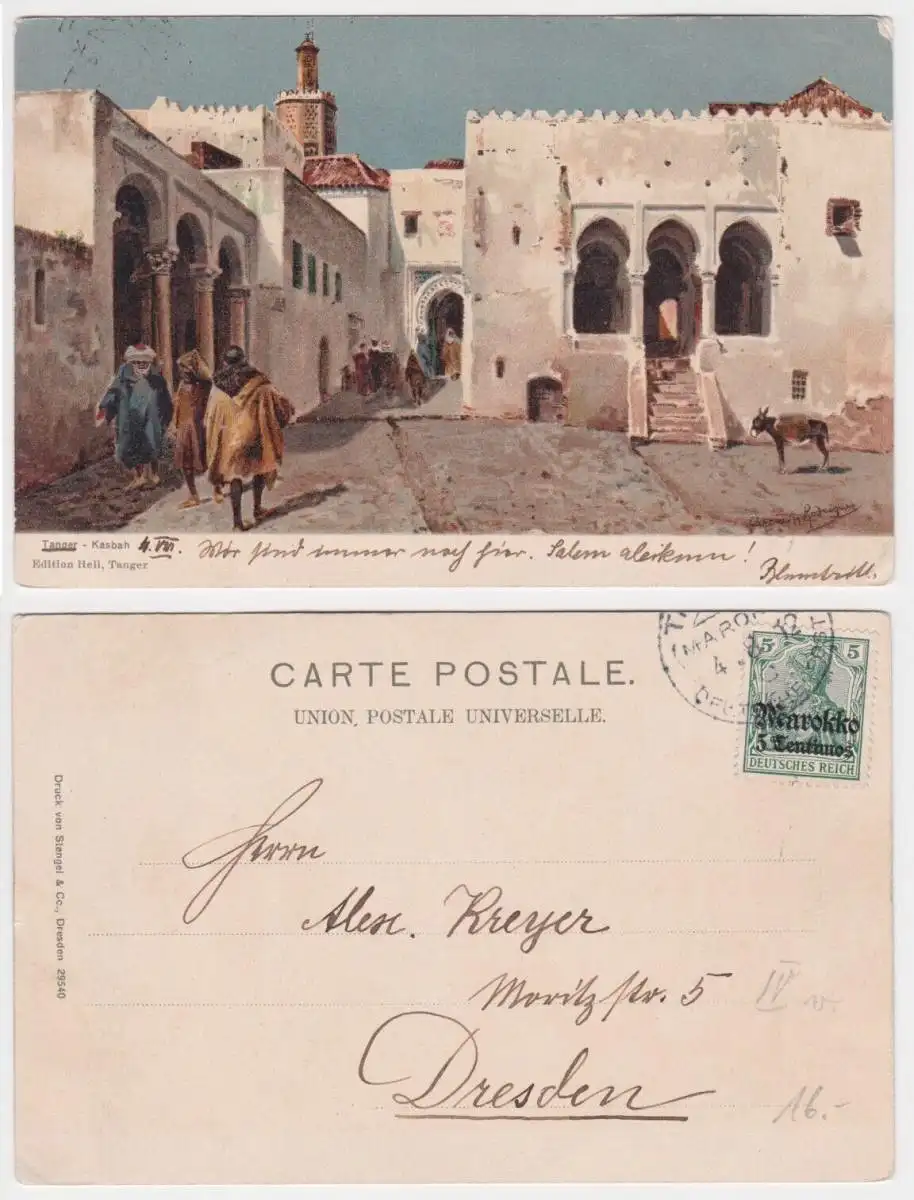 Tanger - Kasbah 4. VIII. Wir sind immer noch hier. Salem aleikum!
Edition Hell, Tanger
CARTE POSTALE.
UNION POSTALE UNIVERSELLE.
MAROK
4
DEUTSCHE POST
5 5
Marokko
5 Centimos
DEUTSCHES REICH
Druck von Stengel & Co., Dresden 29540
Herrn
Alex. Kreyer
Moritzstr. 5
IV
Dresden
16.-